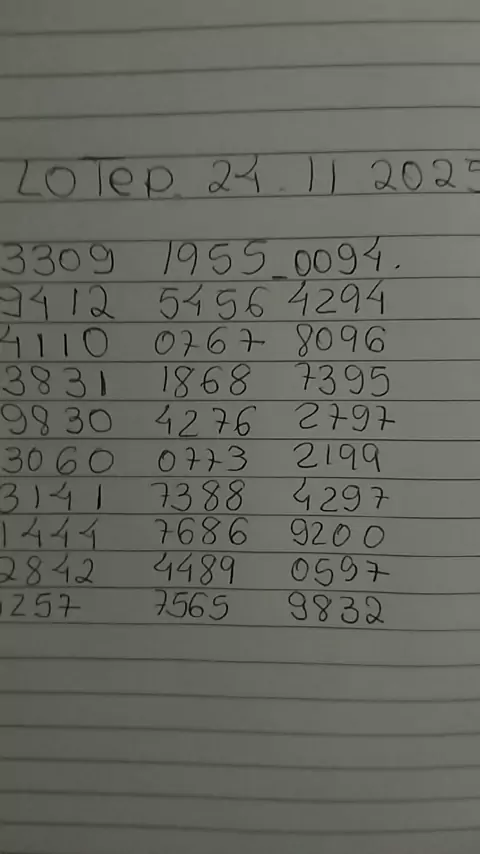 LOTEP. 24.11 2025
3309 1955_0094.
9412 5456 4294
4110 0767 8096
3831 1868 7395
9830 4276 2797
3060 0773 2199
3141 7388 4297
1444 7686 9200
2842 4489 0597
257 7565 9832